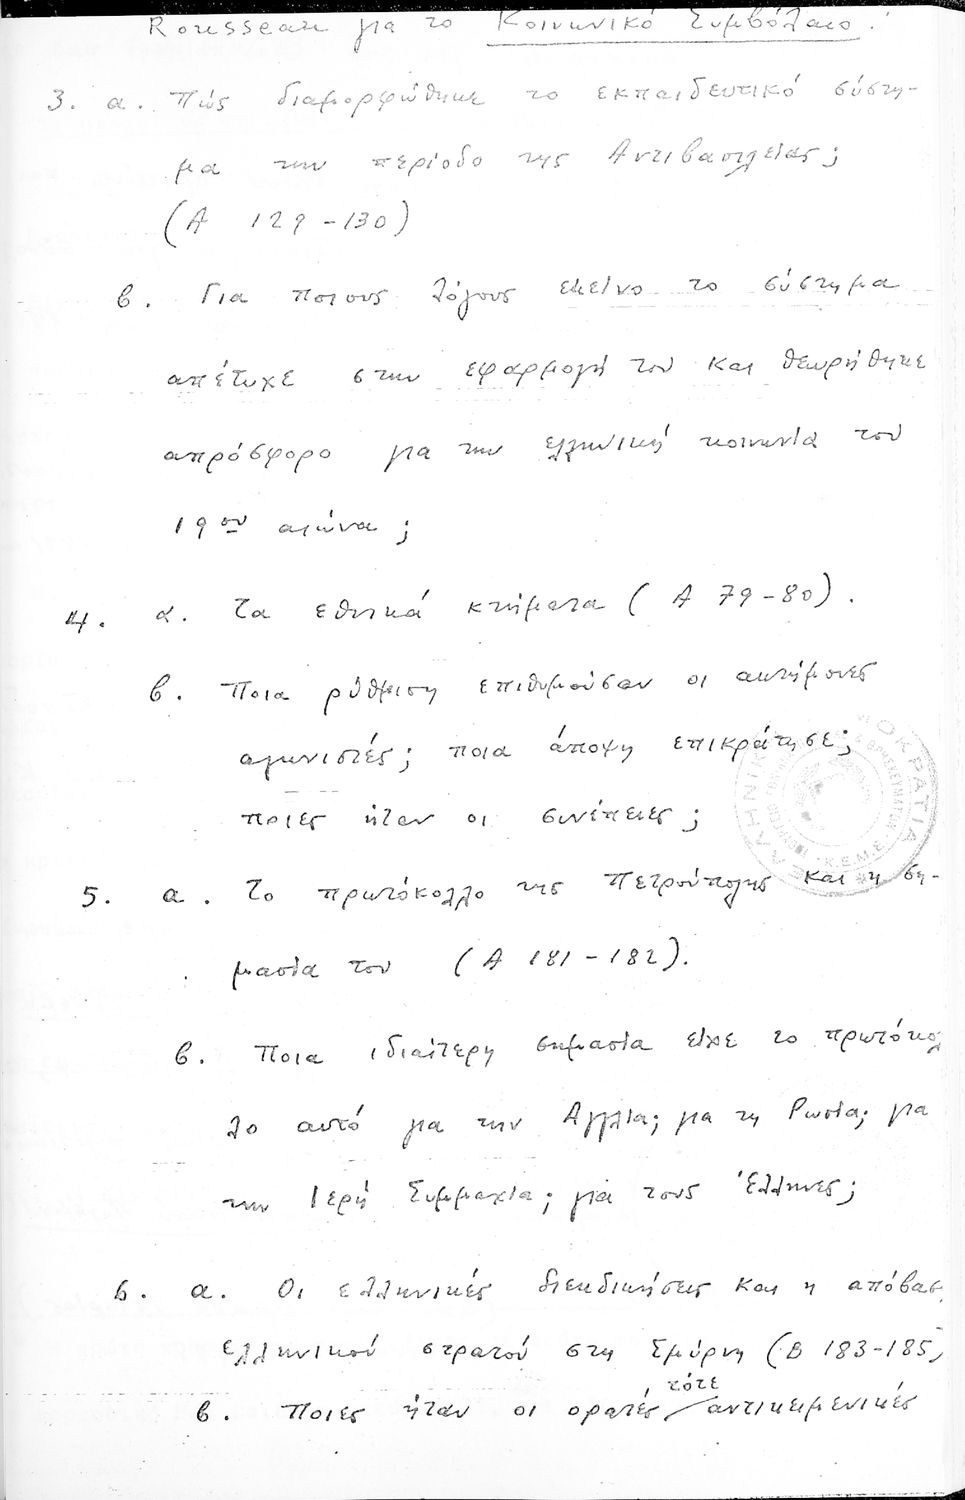 Rousseau για το Κοινωνικό Συμβόλαιο.
3. α. Πώς διαμορφώθηκε το εκπαιδευτικό σύστη-
μα την περίοδο της Αντιβασιλείας;
(Α 129-130)
β. Για ποιους λόγους εκείνο το σύστημα
απέτυχε στην εφαρμογή του και θεωρήθηκε
απρόσφορο για την ελληνική κοινωνία του
19ου αιώνα;
4. α. Τα εθνικά κτήματα (Α 79-80).
β. Ποια ρύθμιση επιθυμούσαν οι ακτήμονες
αγωνιστές; ποια άποψη επικράτησε;
ποιες ήταν οι συνέπειες;
5. α. Το πρωτόκολλο της Πετρούπολης και η ση-
μασία του (Α 181-182).
β. Ποια ιδιαίτερη σημασία είχε το πρωτόκολ
λο αυτό για την Αγγλία; για τη Ρωσία; για
την Ιερή Συμμαχία; για τους Έλληνες;
6. α. Οι ελληνικές διεκδικήσεις και η απόβασ
ελληνικού στρατού στη Σμύρνη (Β 183-185)
τότε
β. Ποιες ήταν οι ορατές αντικειμενικές
ΕΛΛΗΝΙΚ ΔΗΜΟΚΡΑΤΙΑ
Κ.Ε.Μ.Ε.